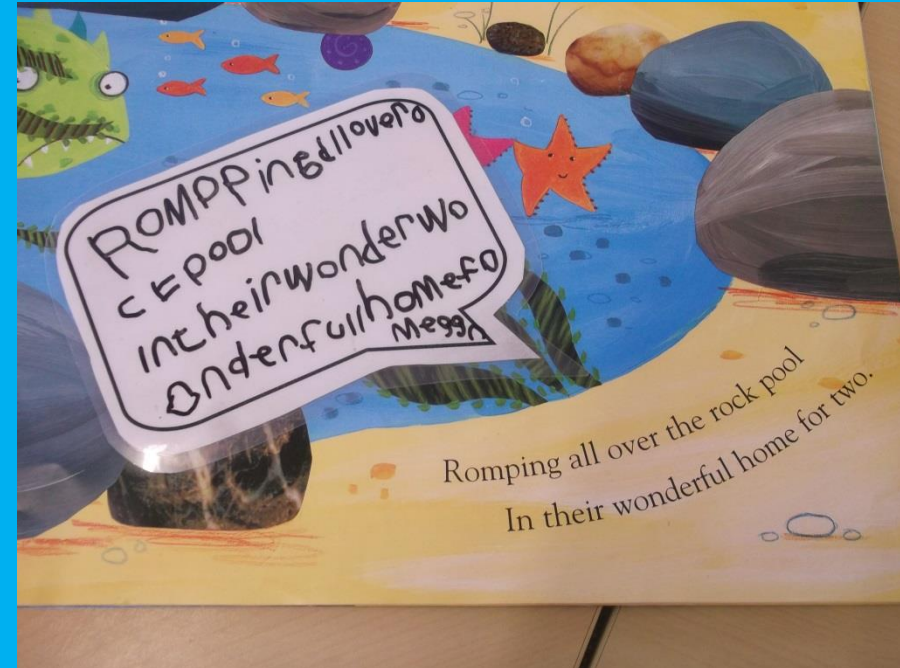 ROMPPingallovero
ckpool
intheirwonderwo
onderfullhomefo
Meggy
Romping all over the rock pool
In their wonderful home for two.